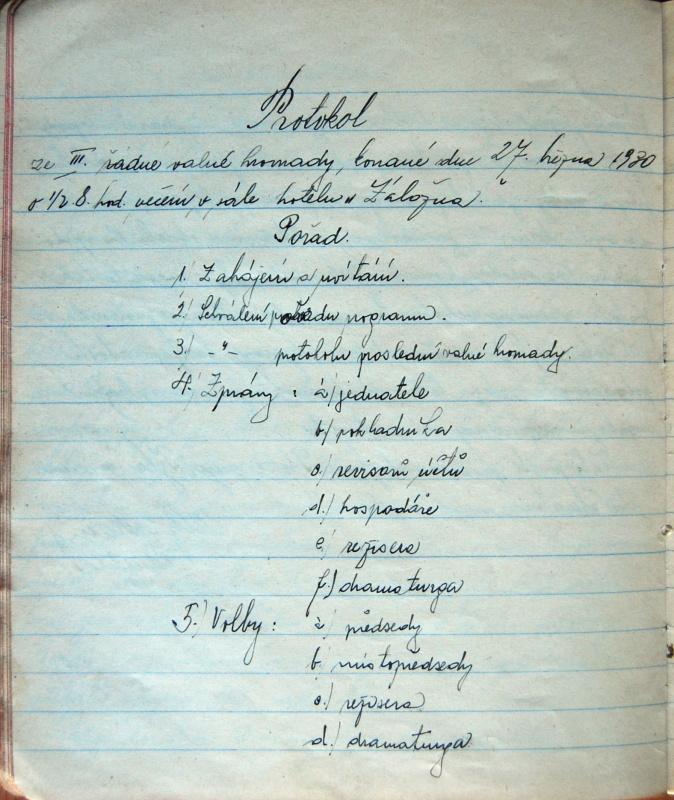 Protokol
ze III. řádné valné hromady, konané dne 27. března 1930
o 1/2 8. hod. večerní v sále hotelu „Záložna."
Pořad.
1.) Zahájení a uvítání.
2.) Schválení pořadu programu.
3.) -"- protokolu poslední valné hromady.
4.) Zprávy: a) jednatele
b) pokladníka
c) revisorů účtů
d.) hospodáře
e) režisera
f.) dramaturga
5.) Volby: a) předsedy
b) místopředsedy
c) režisera
d.) dramaturga